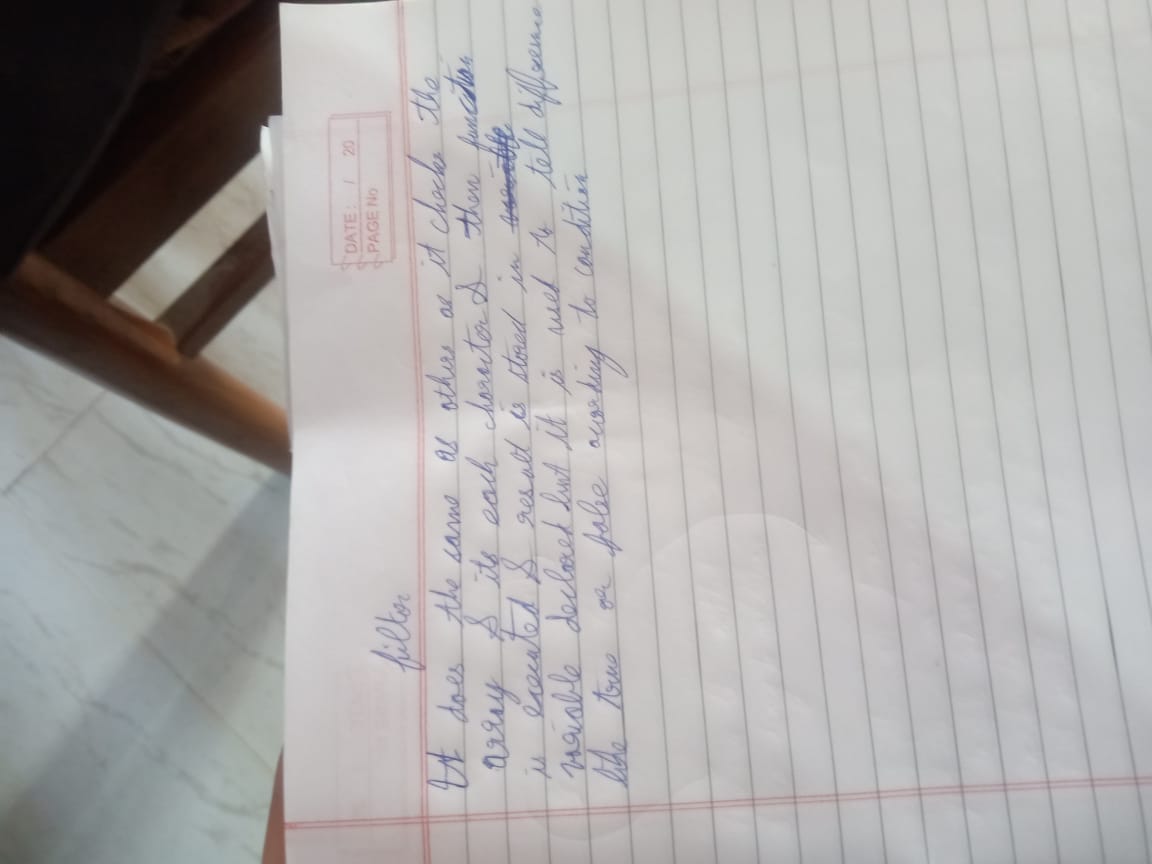 DATE: / 20
PAGE No
filter
It does the same as others as it checks the
array & its each charactor & then function
is executed & result is stored in
variable declared but it is used to tell difference
like true or false according to condition